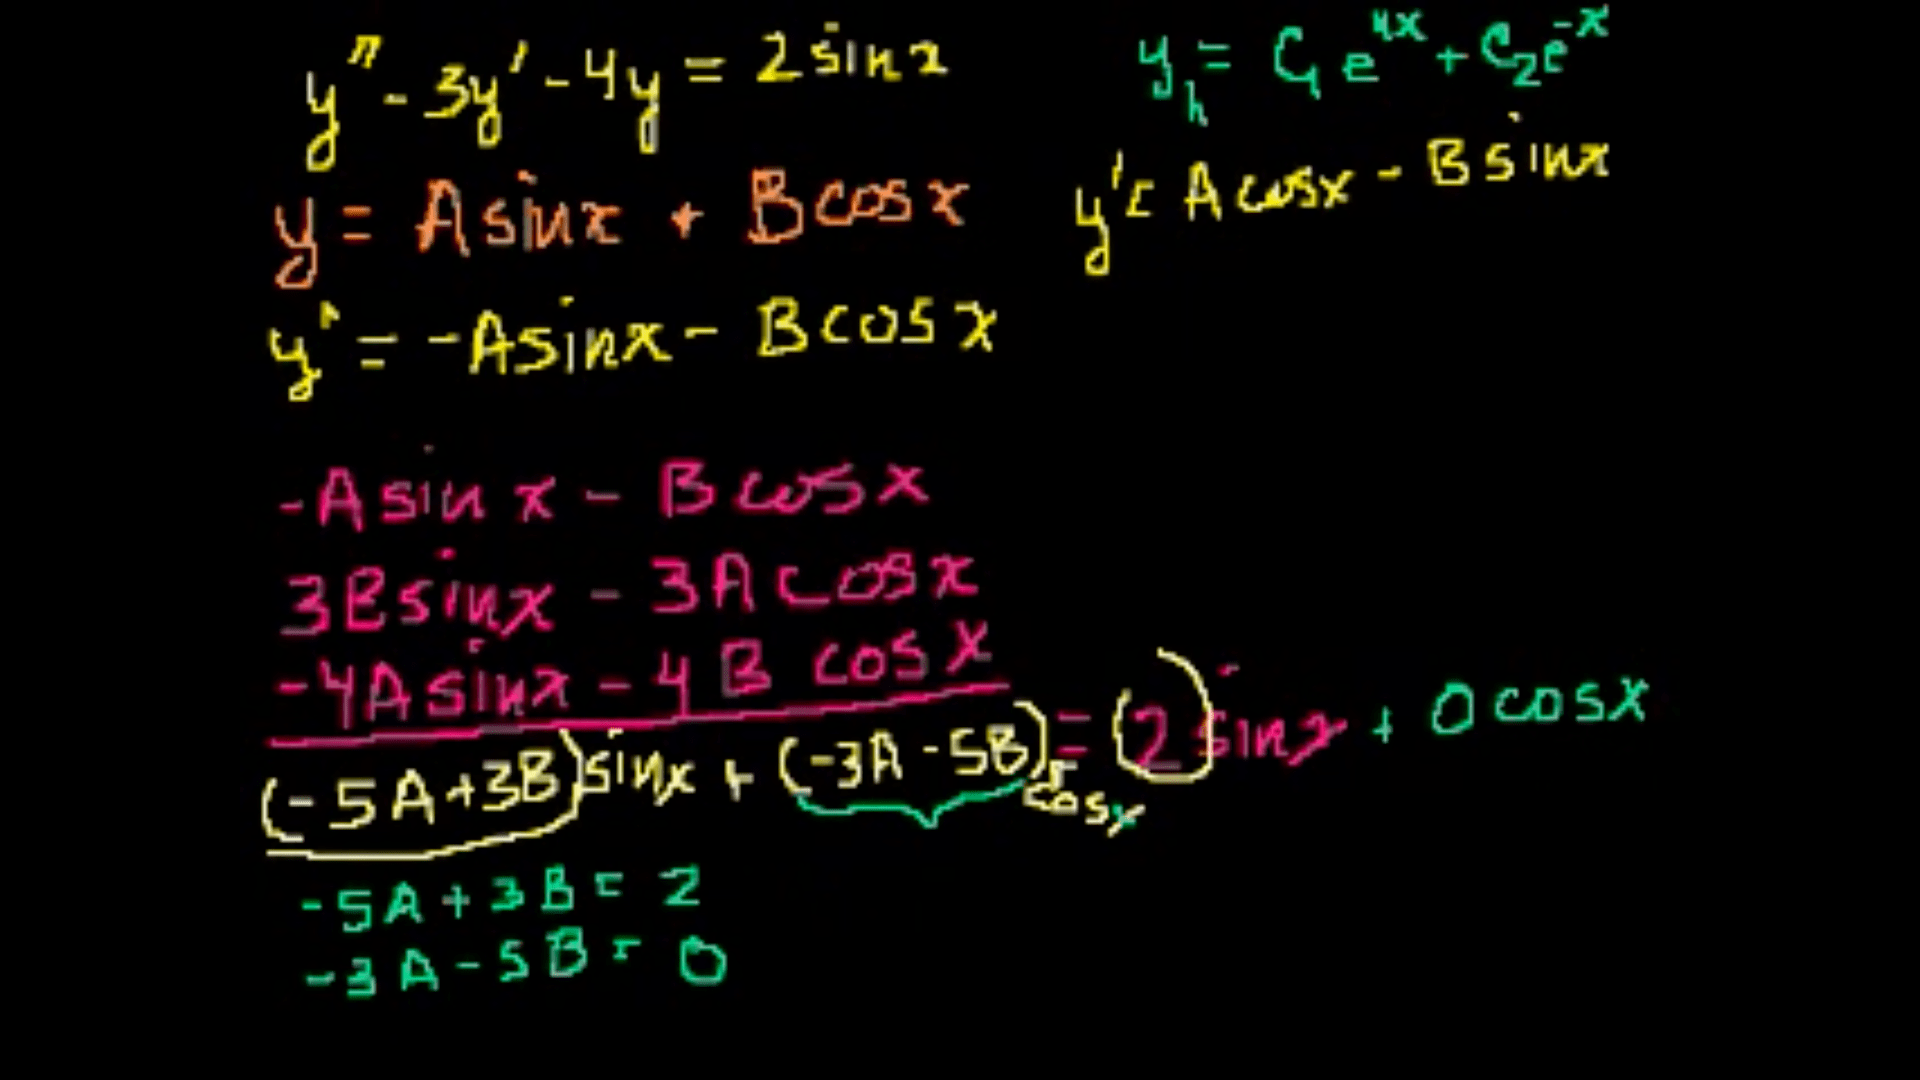 y'' - 3y' - 4y = 2 sin x
y_h = C₁e^{4x} + C₂e^{-x}
y = A sin x + B cos x
y' = A cos x - B sin x
y'' = -A sin x - B cos x
-A sin x - B cos x
3B sin x - 3A cos x
-4A sin x - 4B cos x
(-5A + 3B) sin x + (-3A - 5B) cos x = 2 sin x + 0 cos x
-5A + 3B = 2
-3A - 5B = 0